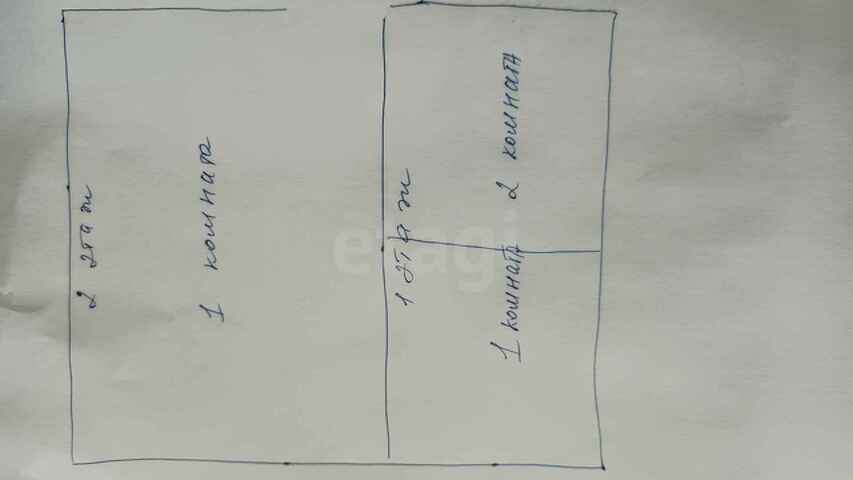 2 этаж
1 комната
1 этаж
1 комната
2 комната
etagi